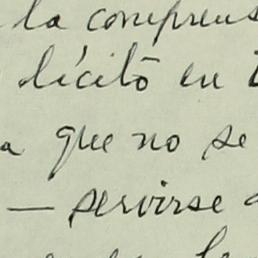 la comprens
lícito en
a que no se
— servirse